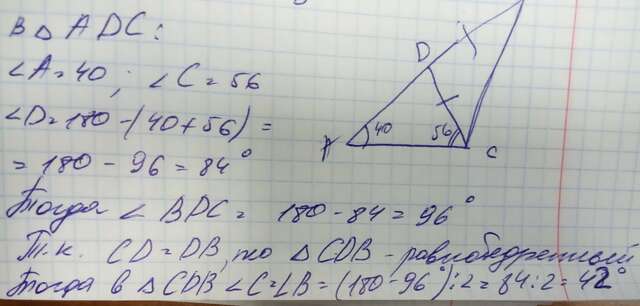 В △ ADC:
∠A=40; ∠C=56
∠D=180-(40+56)=
=180-96=84°
Тогда ∠BDC= 180-84=96°
Т.к. CD=DB, то △CDB - равнобедренный
Тогда в △CDB ∠C=∠B=(180-96°):2=84:2=42°
D
A
40
56
C